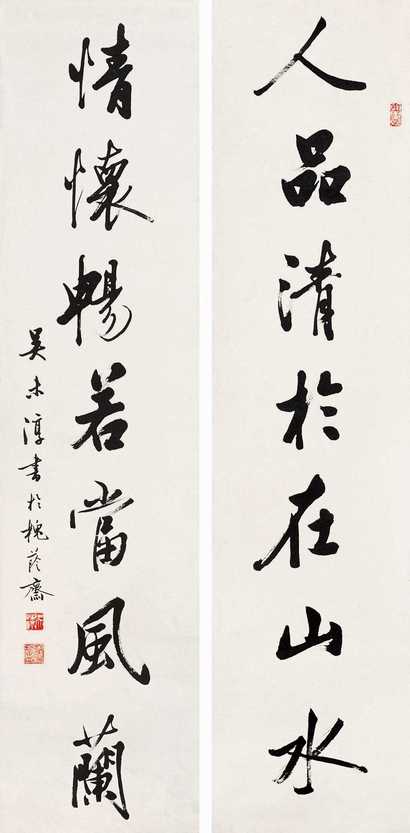 人品清於在山水
情懷暢若當風蘭
吳未淳書於槐蔭齋